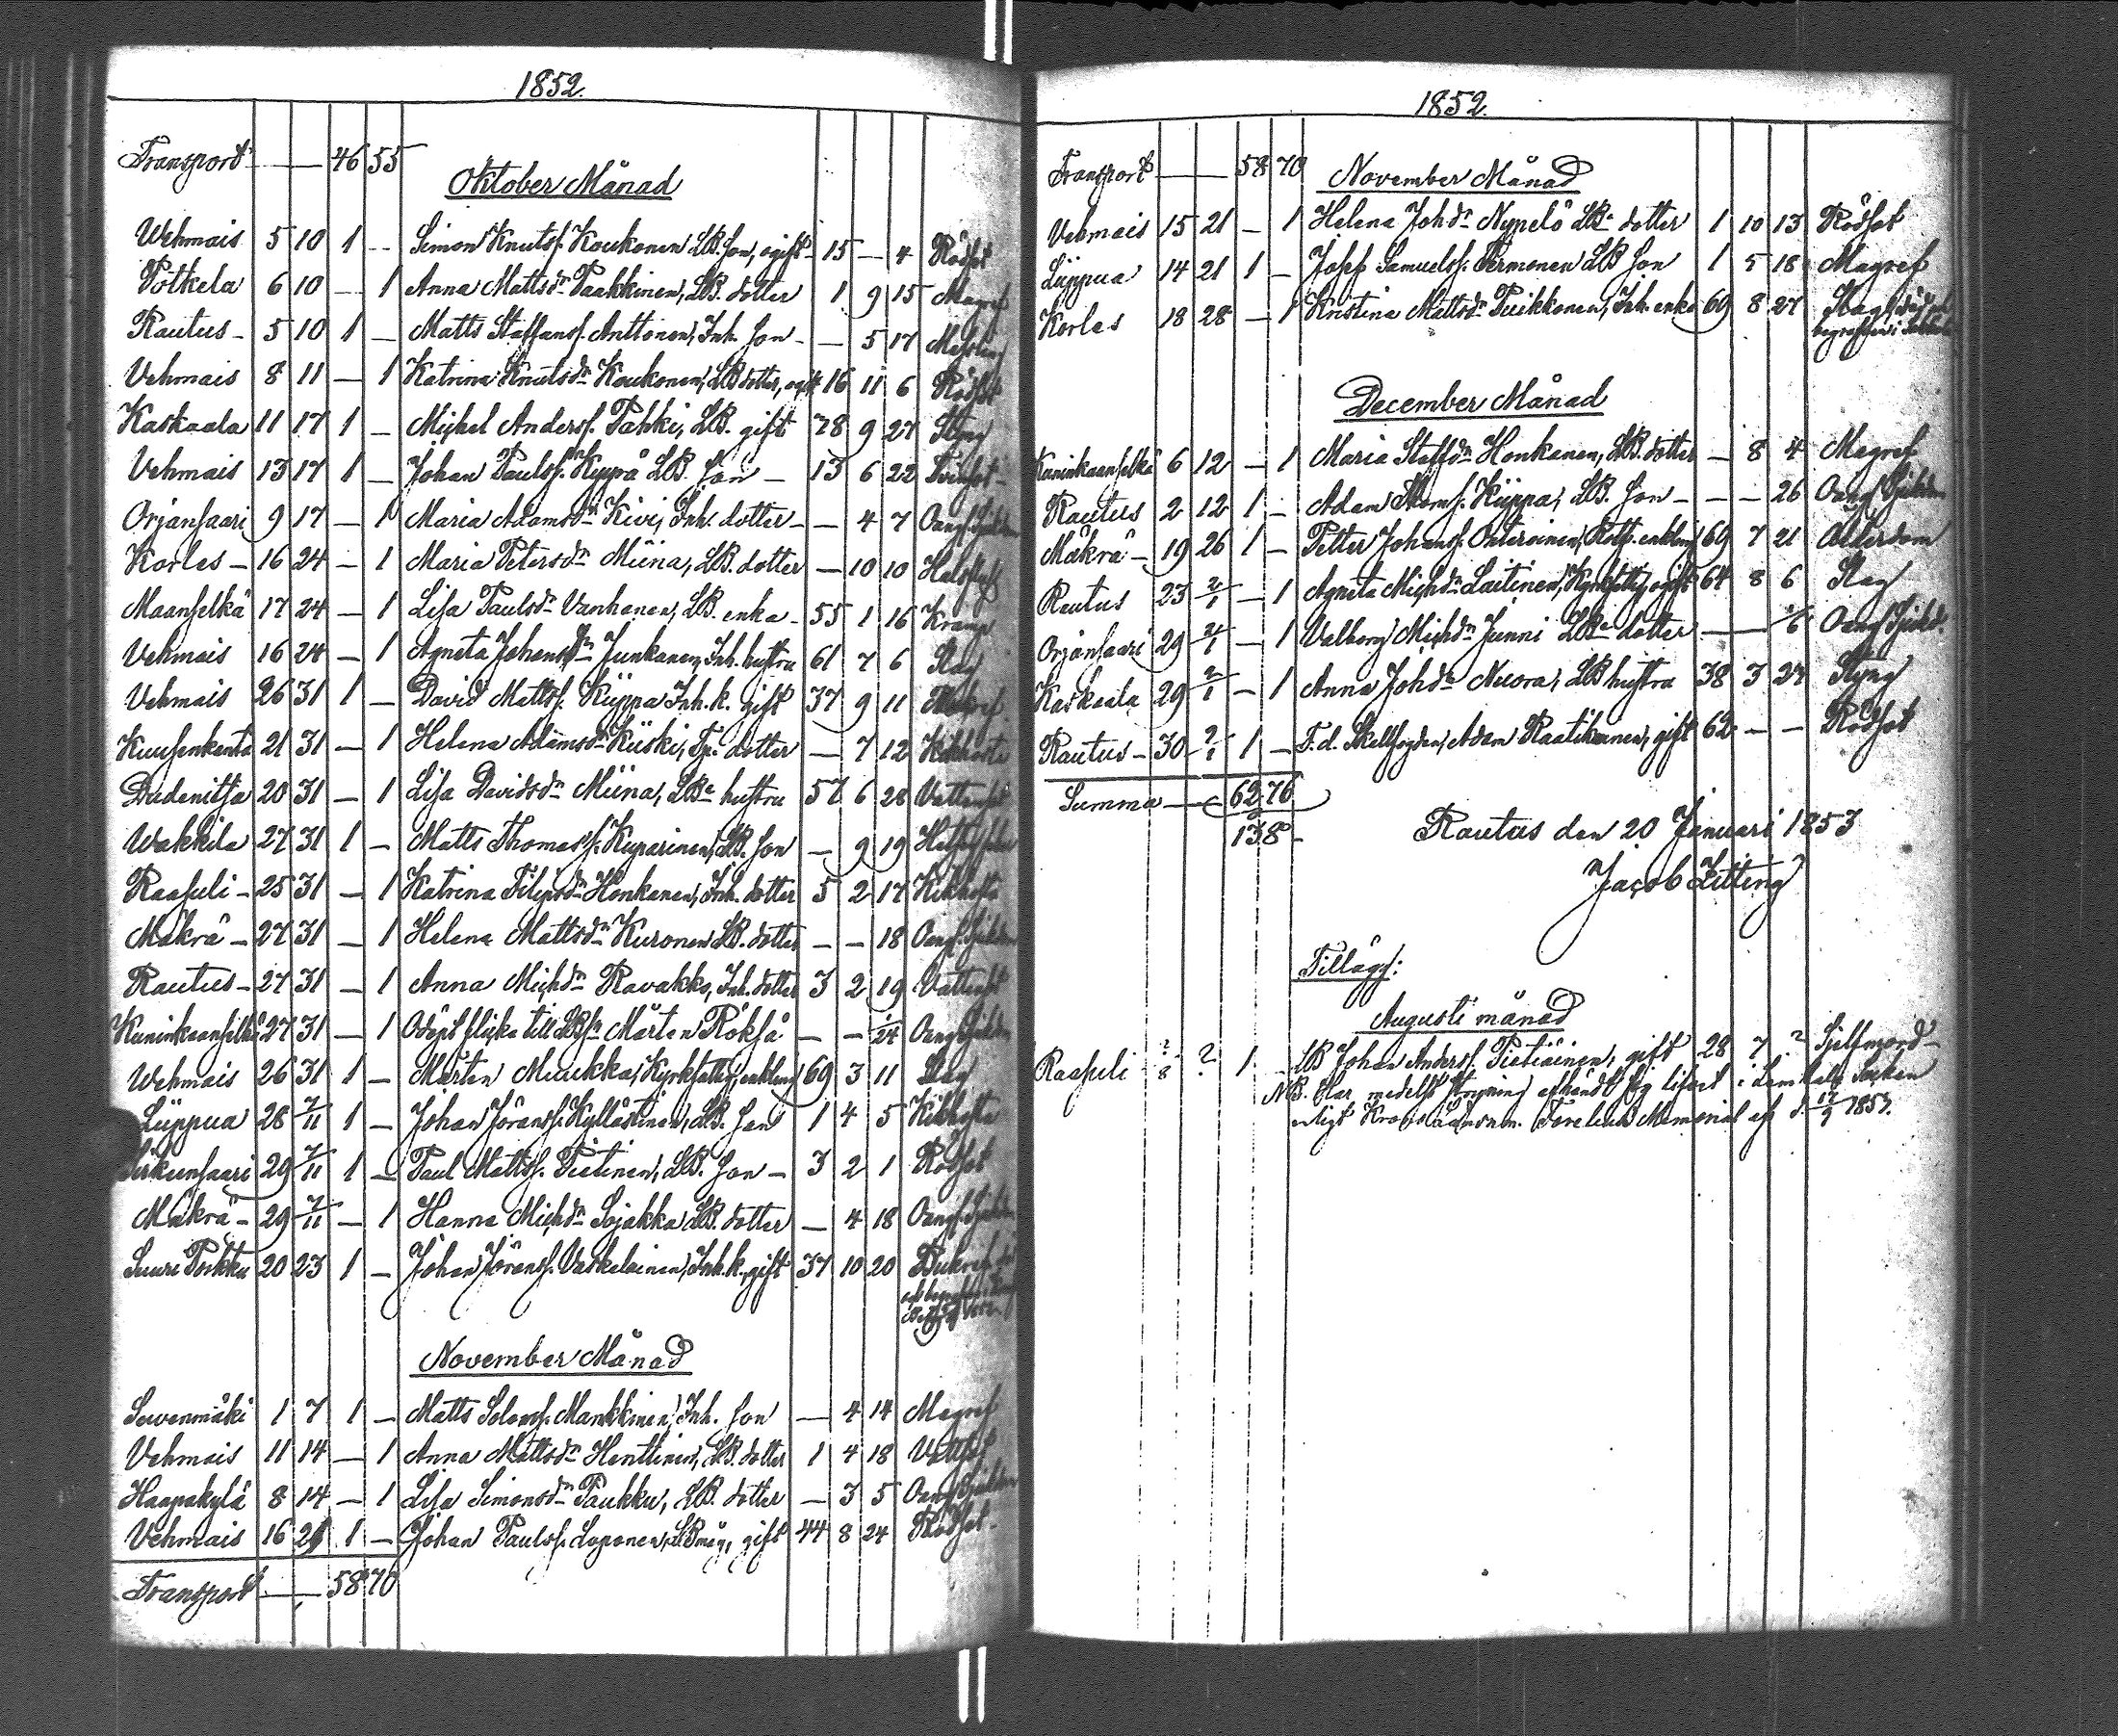 1852.
Transport — — 46 55
Oktober Månad
Wehmais 5 10 1 - Simon Knutss. Koukonen LB. son, ogift 15 — 4 Rödsot
Potkela 6 10 — 1 Anna Mattsdr Paakkinen, LB. dotter 1 9 15 Magref
Rautus 5 10 1 — Matts Staffanss. Anttonen, Inh. son — 5 17
Vehmais 8 11 — 1 Katrina Knutsdr Koukonen, LB dotter, ogift 16 11 6 Rödsot
Kaskaala 11 17 1 — Michel Anderss. Pahki, LB. gift 78 9 27 Styng
Vehmais 13 17 1 — Johan Paulss. Kyppä LB. son — 13 6 22 Tvinsot
Orjansaari 9 17 — 1 Maria Adamsdr Kivi, Inh. dotter — 4 7 Oangf. Sjukdom
Korles — 16 24 — 1 Maria Petersdr Miina, LB. dotter — 10 10
Maanselkä 17 24 — 1 Lisa Paulsdr Vanhanen, LB. enka — 55 1 16 Kramp
Vehmais 16 24 — 1 Agneta Johansdr Junkanen, Inh. hustru 61 7 6 Slag
Vehmais 26 31 1 — David Mattss. Küppa Inh. k. gift 37 9 11
Kuusenkanta 21 31 — 1 Helena Adamsdr Küski, Tp. dotter — 7 12 Kikhosta
Dudenitsa 20 31 — 1 Lisa Davidsdr Miina, LBe hustru 57 6 28 Vattensot
Wakkila 27 31 1 — Matts Thomass. Kuparinen, LB. son — 9 19
Raasuli — 25 31 — 1 Katrina Filipsdr Honkanen, Inh. dotter 5 2 17 Kikhosta
Mäkrä — 27 31 — 1 Helena Mattsdr Kuronen LB. dotter — — 18 Oangf. Sjukdom
Rautus — 27 31 — 1 Anna Michdr Ravakko, Inh. dotter 3 2 19 Vattensot
Kuninkaanselkä 27 31 — 1 Odöpt flicka till LBsn Mårten Röksä — — 1/24 Oangf Sjukdom
Wehmais 26 31 1 — Mårten Muukka, Kyrkfattig, enkling 69 3 11 Slag
Lüppua 28 7/11 1 — Johan Jöranss. Kyllästinen, LB. son 1 4 5 Kikhosta
29 7/11 1 — Paul Mattss. Pietinen, LB. son — 3 2 1 Rödsot
Mäkrä — 29 7/11 — 1 Hanna Michdr Sojakka LB. dotter — 4 18 Oangf. Sjukdom
Suuri Porkku 20 23 1 — Johan Jöranss. Vaskelainen, Inh. k. gift 37 10 20 Bukref
November Månad
Sirvenmäki 1 7 1 — Matts Salomss. Mankkinen, Inh. son — 4 14 Magref
Vehmais 11 14 — 1 Anna Mattsdr Henttinen, LB. dotter 1 4 18 Vattsot
Haapakylä 8 14 — 1 Lisa Simonsdr Paukku, LB. dotter — 3 5 Oangf Sjukdom
Vehmais 16 21 1 — Johan Paulss. Loponen, LBmåg, gift 44 8 24 Rödsot
Transport — — 58 70
1852.
Transport — — 58 70
November Månad
Vehmais 15 21 — 1 Helena Johdr Nypelö LBe dotter 1 10 13 Rödsot
Lüppua 14 21 1 — Josef Samuelss. Permonen LB son 1 5 18 Magref
Korles 18 28 — 1 Kristina Mattsdr Puikkonen, Inh. enka 69 8 27 Slag,
begrafven i
December Månad
Kuninkaanselkä 6 12 — 1 Maria Staffdr Honkanen, LB. dotter — 8 4 Magref
Rautus 2 12 1 — Adam Thomss. Küppa, LB. son — — — 26 Oangf Sjukdom
Mäkrä — 19 26 1 — Petter Johanss. Outeroinen, Rotf. enkling 69 7 21 Ålderdom
Rautus 23 2/1 — 1 Agneta Michdr Laitinen, Kyrkfattig, ogift 64 8 6 Slag
Orjansaari 29 2/1 — 1 Valborg Michdr Junni LBe dotter — — 1/6 Oangf Sjukd.
Kaskaala 29 2/1 — 1 Anna Johdr Nuora, LB hustru 38 3 27 Styng
Rautus — 30 2/1 1 — F.d. Skallfogden, Adam Raatikainen, gift 62 — — Rödsot
Summa — — 62 76
138 —
Rautus den 20 Januari 1853
Jacob Zitting
Tillägg:
Augusti månad
Raasuli ?/8 ? 1. LB Johan Anderss. Pietiäinen, gift 28 7 ? Sjelfmord —
NB. Har medelst strypning afhändt sig lifvet i Lembala Socken
enligt Kronolänsman Memorial af d. 17/9 1857.